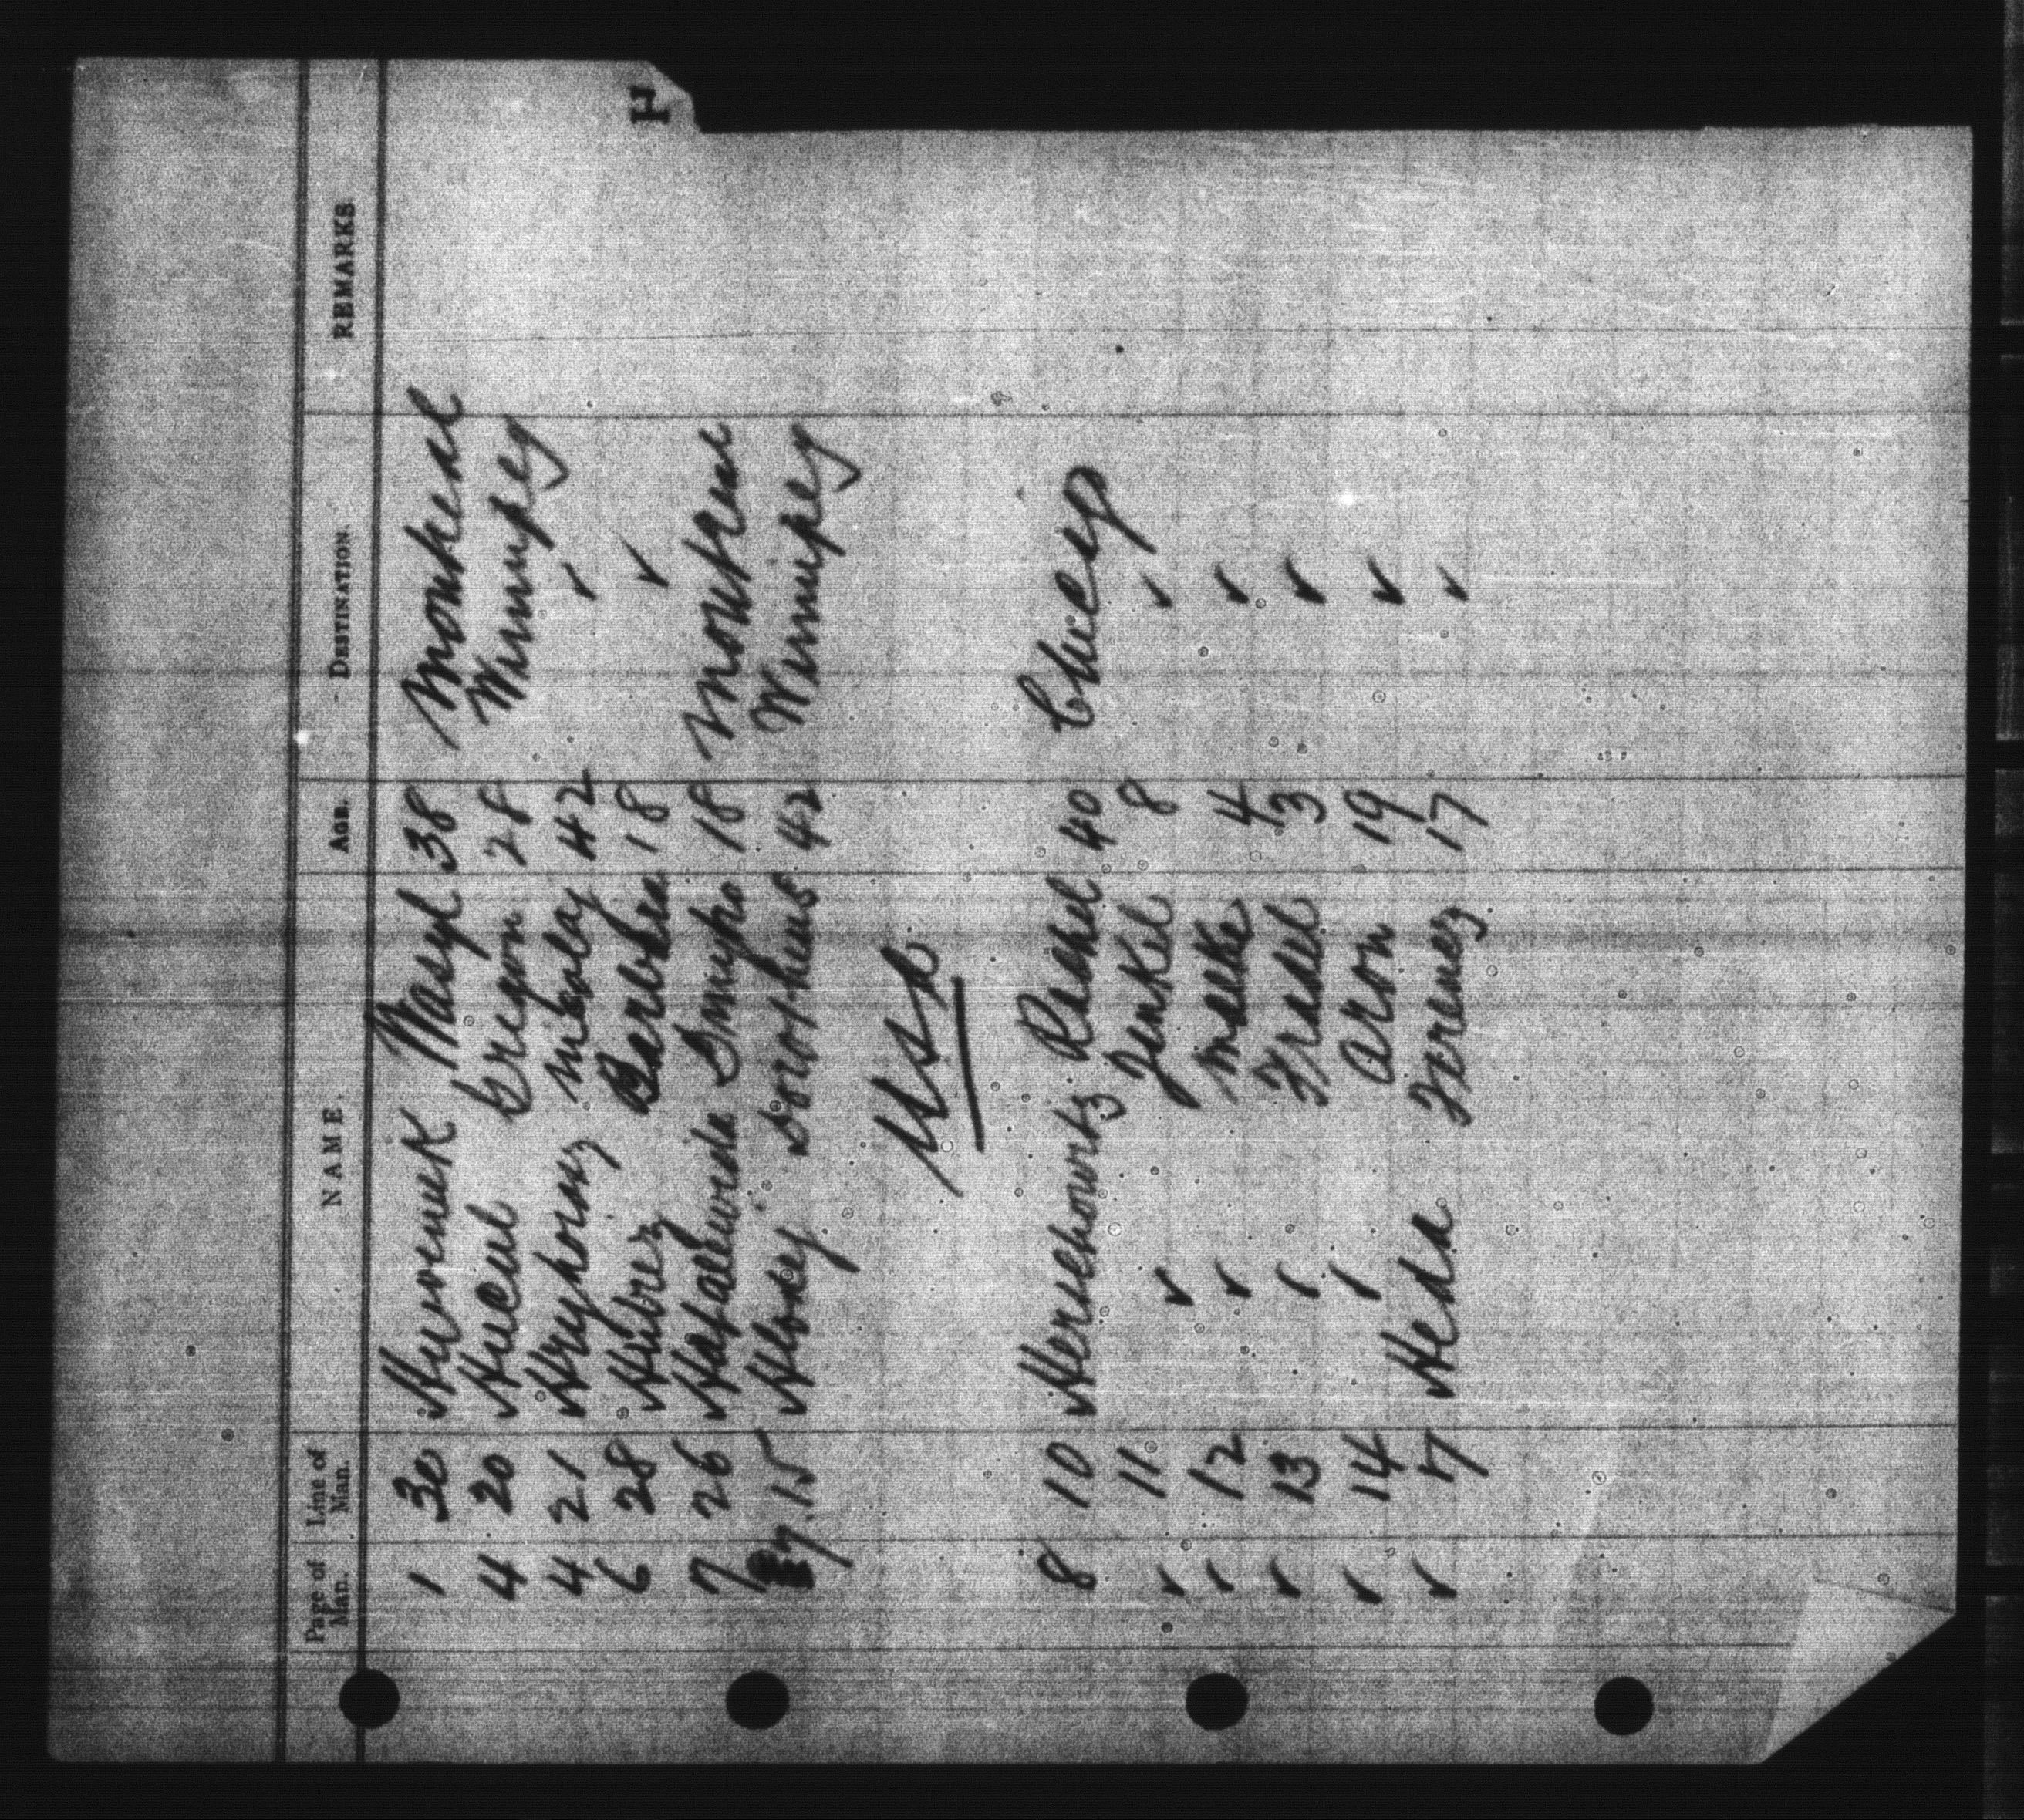 H
Page of Man. Line of Man. NAME. AGE. DESTINATION. REMARKS
1 30 Huwornuk Wasyl 38 Montreal
4 20 Hucul Gregon 28 Winnipeg
4 21 Hryhorcuz Mikolaj 42 ✓
6 28 Hubrez Barbara 18 ✓
7 26 Hapalewicla Dmytro 18 Montreal
7 15 Hlokey Dorotheus 42 Winnipeg
USA
8 10 Herschowitz Rachel 40 Chicago
✓ 11 ✓ Jenkel 8 ✓
✓ 12 ✓ Malke 4 ✓
✓ 13 ✓ Fradel 3 ✓
✓ 14 ✓ Aron 19 ✓
✓ 17 Heda Ferencz 17 ✓